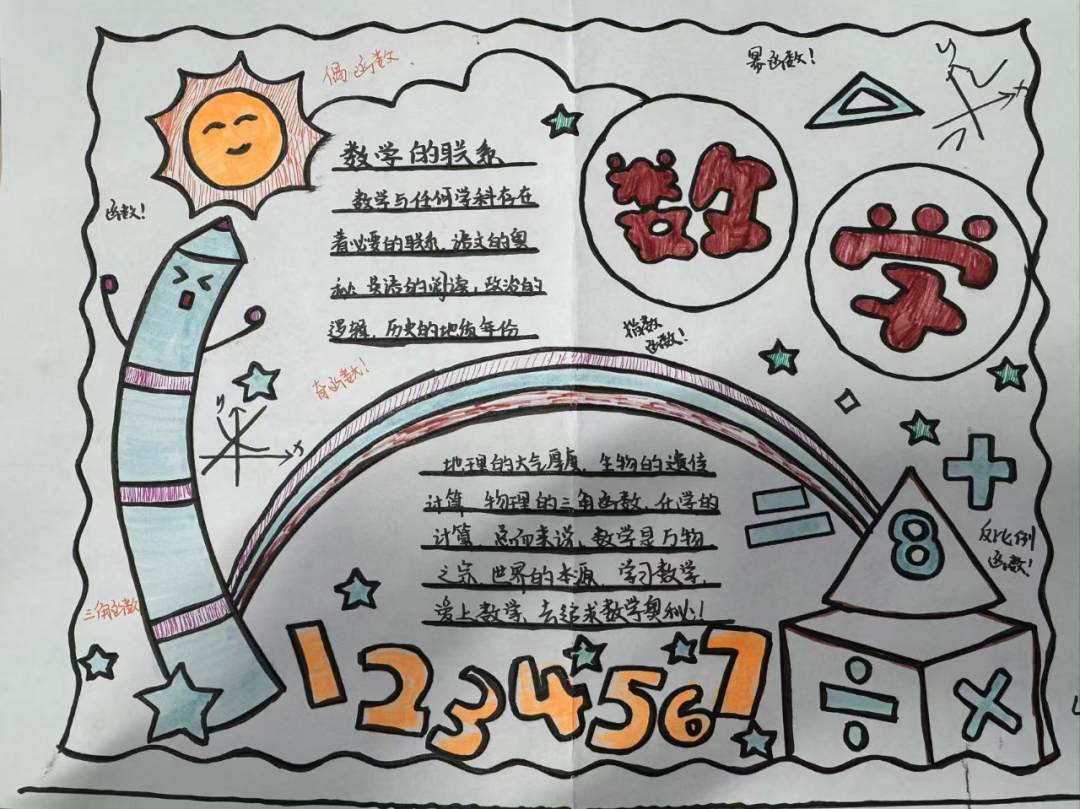 偶函数
幂函数!
y
x
数学
函数!
数学的联系
数学与任何学科存在
着必要的联系,语文的奥
秘,英语的阅读,政治的
逻辑,历史的地质年份
指数
函数!
奇函数!
y
x
地理的大气厚度,生物的遗传
计算,物理的三角函数,化学的
计算,总而来说,数学是万物
之宗,世界的本源,学习数学,
爱上数学,去追求数学奥秘!
三角函数
反比例
函数!
+
=
8
1 2 3 4 5 6 7
÷
×